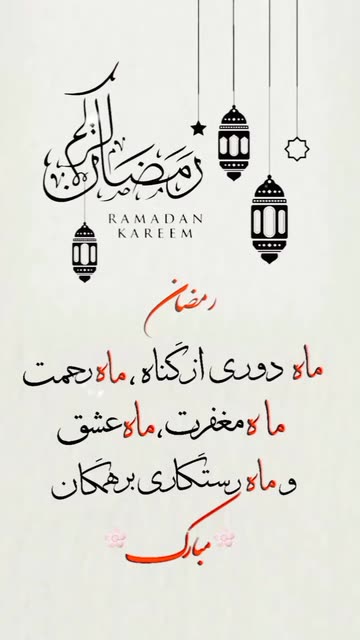 رمضان الكريم
RAMADAN
KAREEM
رمضان
ماه دوری از گناه، ماه رحمت
ماه مغفرت، ماه عشق
و ماه رستگاری بر همگان
مبارک